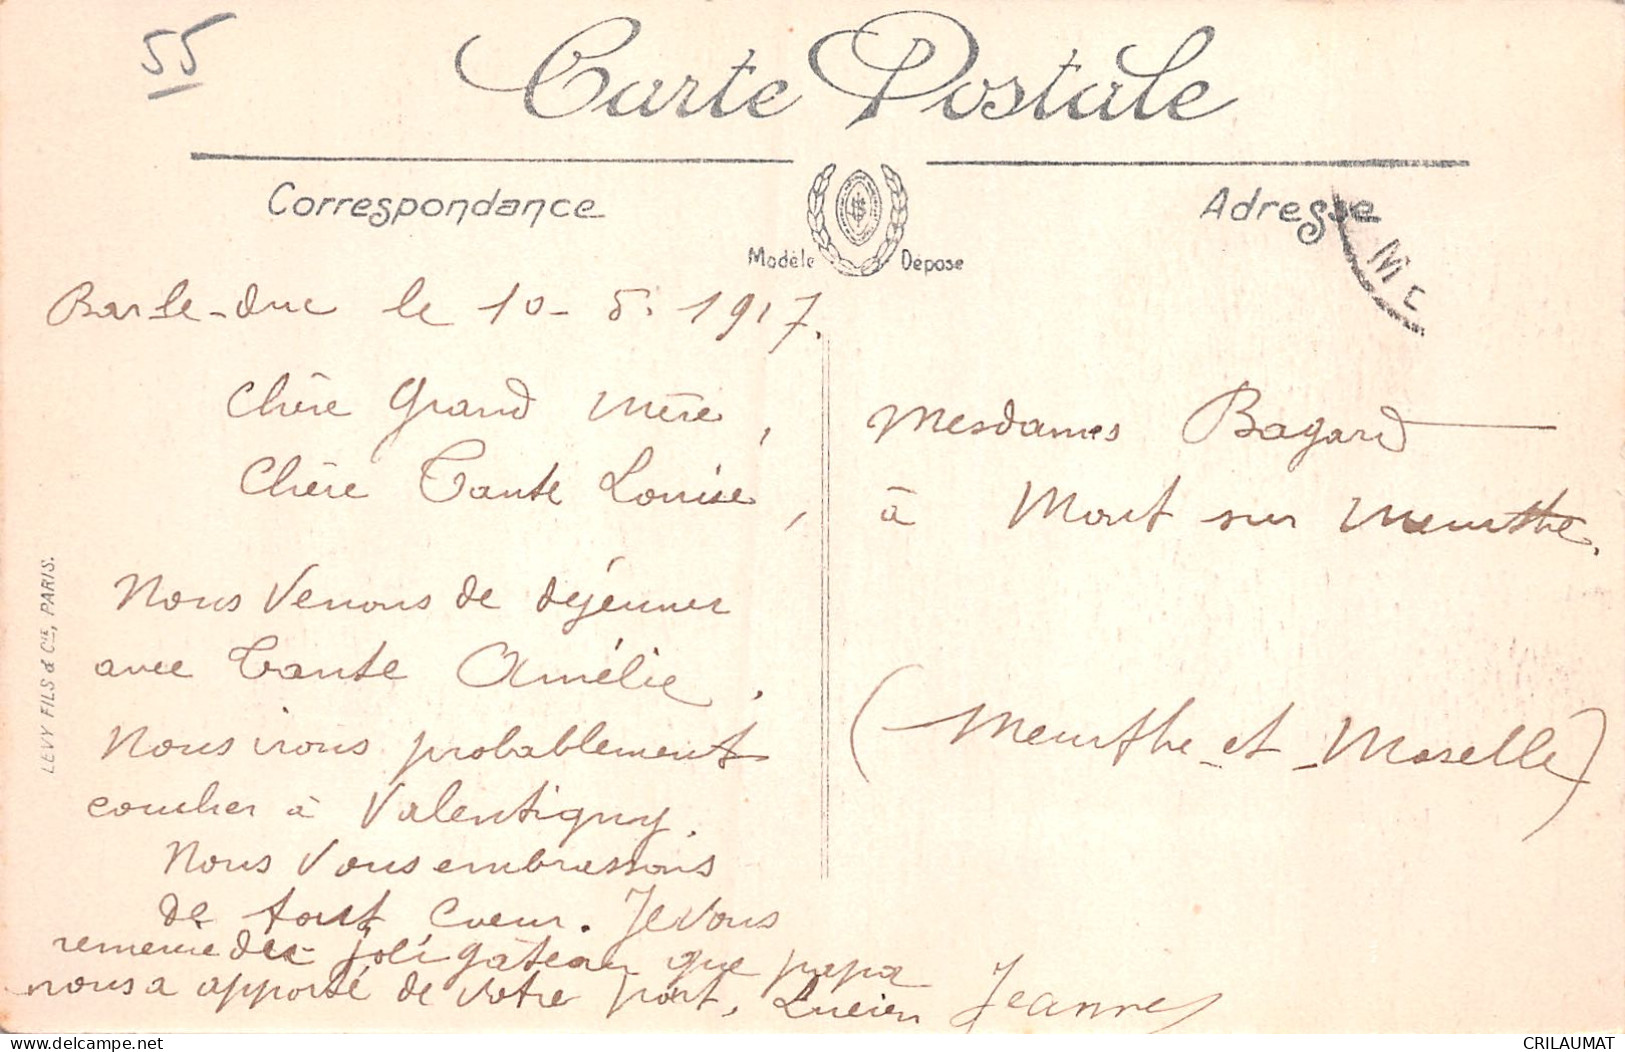 55
Carte Postale
Correspondance
Adresse
Modèle Déposé
Bar-le-duc le 10-5. 1917.
Chère Grand Mère,
Chère Tante Louise,
Nous venons de déjeuner
avec Tante Amélie.
Nous irons probablement
coucher à Valentigny.
Nous vous embrassons
de tout coeur. Je vous
remercie du joli gâteau que papa
nous a apporté de votre part. Lucien Jeanne
Mesdames Bagard
à Mont sur Meurthe.
(Meurthe-et-Moselle)
LEVY FILS & Cie, PARIS.
CRILAUMAT
delcampe.net